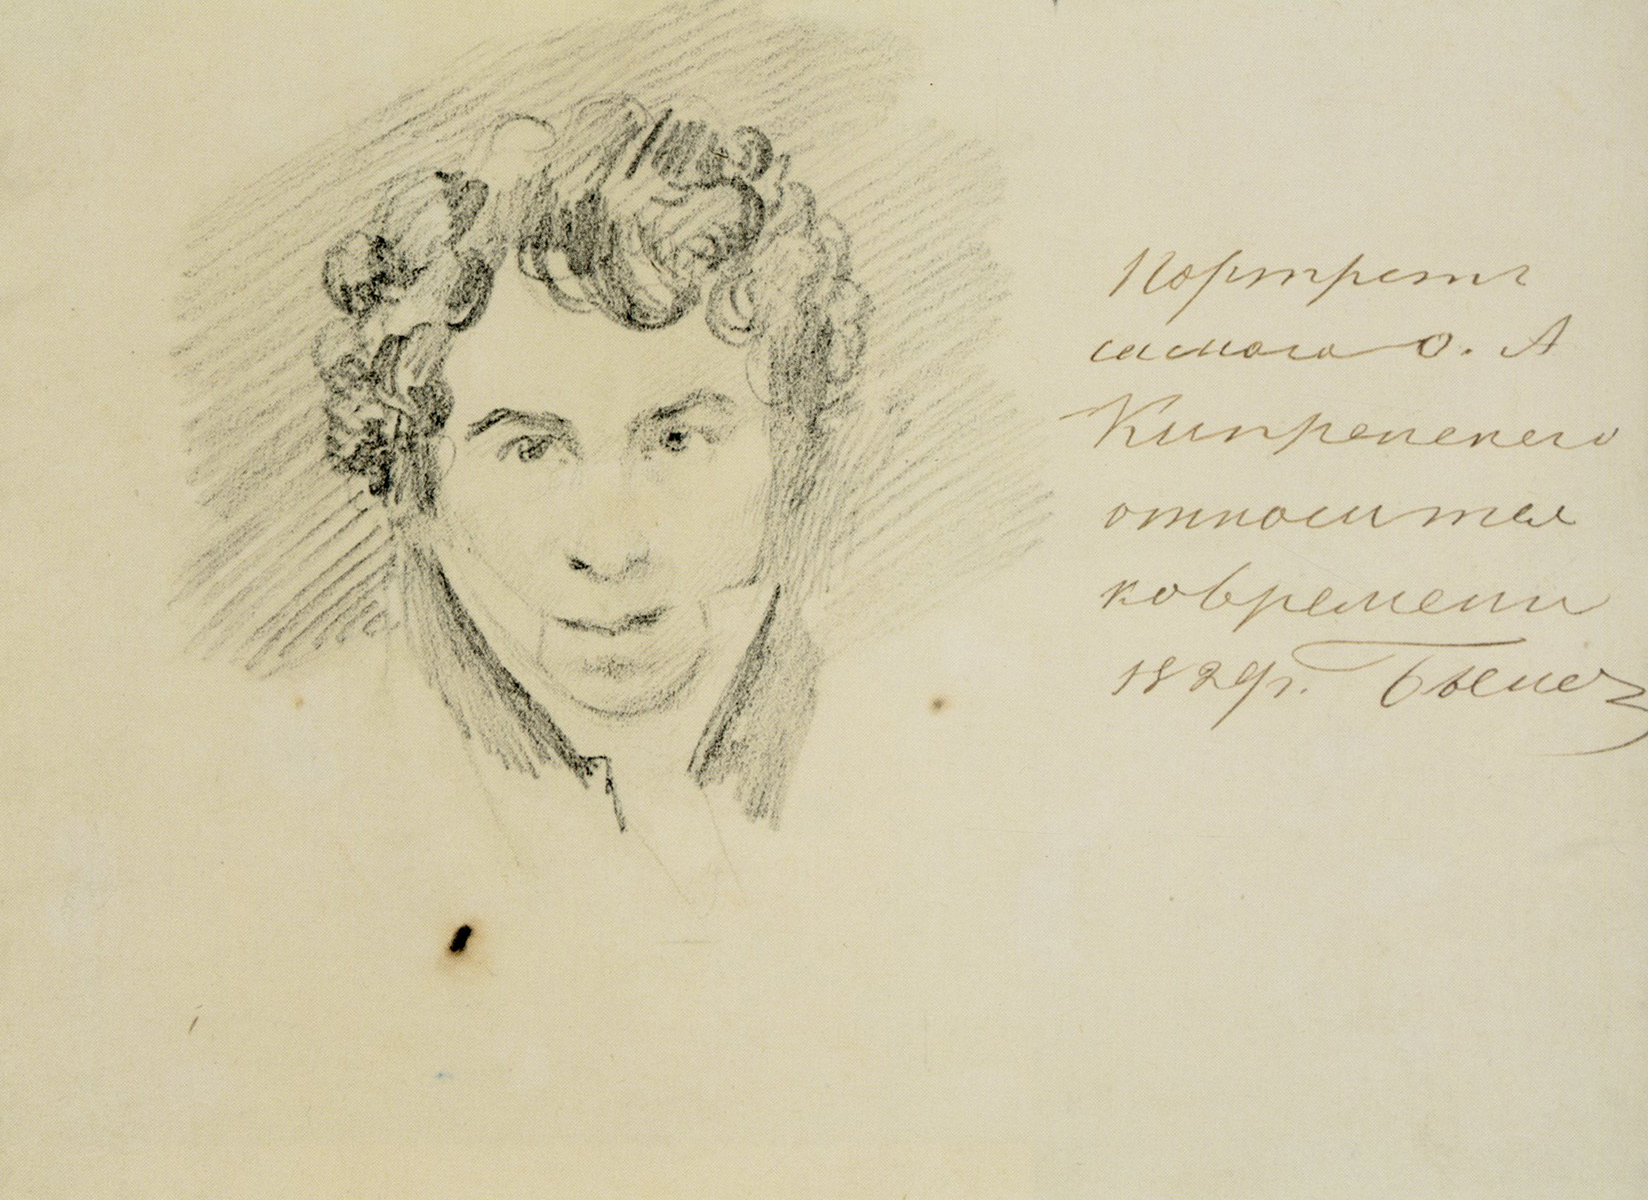 Портретъ
самого О. А
Кипренскего
относится
ко времени
1829г.